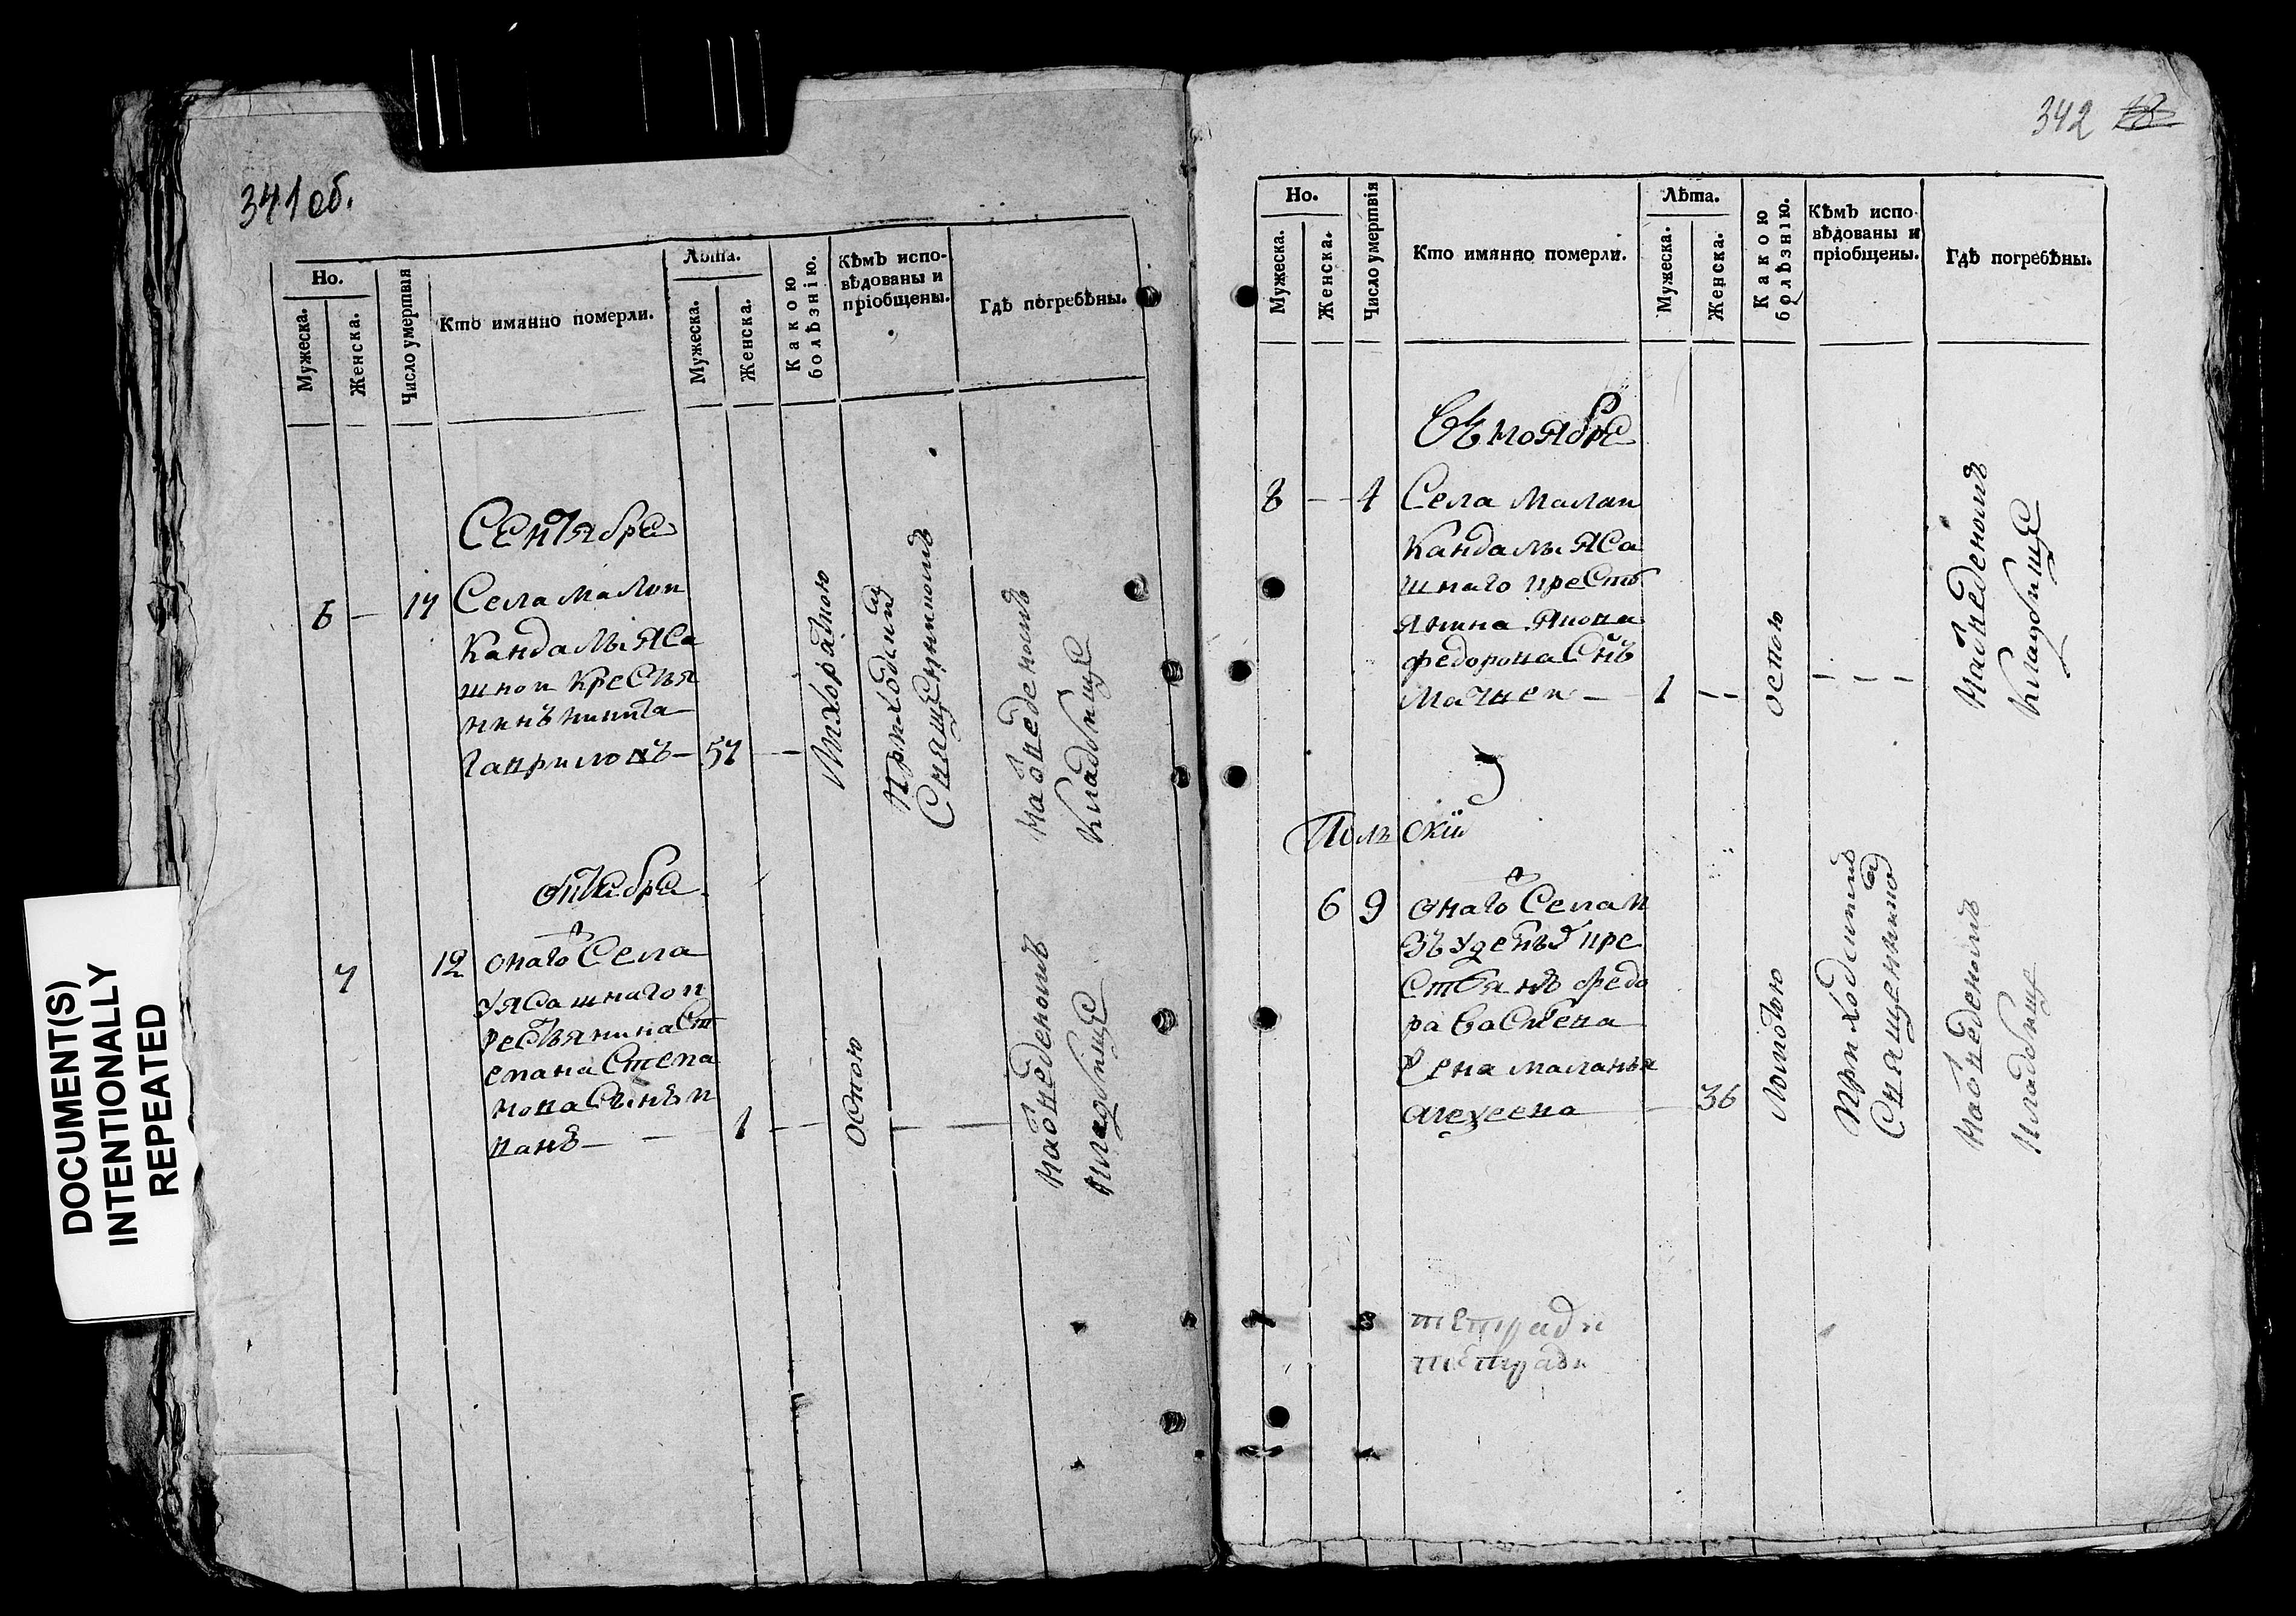 341 об.
Но.
Мужеска.
Женска.
Число умертвія
Кто имянно померли.
Лѣта.
Мужеска.
Женска.
Какою
болѣзнію.
Кѣмъ испо-
вѣдованы и
пріобщены.
Гдѣ погребѣны.
Сентябре
6 — 17 Села Малои
Кандалы яса
шнои кресья
нинъ никита
гавриловъ — 57 —
лихорадкою
Приходским
Священником
На отведеномъ
кладбище
октебре
7 12 онаго Села
у ясашнаго к
ресьянина Ст
епана Степа
нова Сынъ и
ванъ — — 1 —
оспою
— —
На отведеномъ
кладбище
DOCUMENT(S)
INTENTIONALLY
REPEATED
342
Но.
Мужеска.
Женска.
Число умертвія
Кто имянно померли.
Лѣта.
Мужеска.
Женска.
Какою
болѣзнію.
Кѣмъ испо-
вѣдованы и
пріобщены.
Гдѣ погребѣны.
Въ ноябре
8 — 4 Села Малаи
Кандалы яса
шнаго кресть
янина якова
федорова Снъ
Матвеи — 1 --
оспою
— — —
На отведеномъ
кладбище
6 9 онаго Села и
зъ уделных кре
стьянъ федо
ра васильева
жена маланья
алексеева — 36
Приходскимъ
Священнико
На отведеномъ
кладбище
тетради
тетради